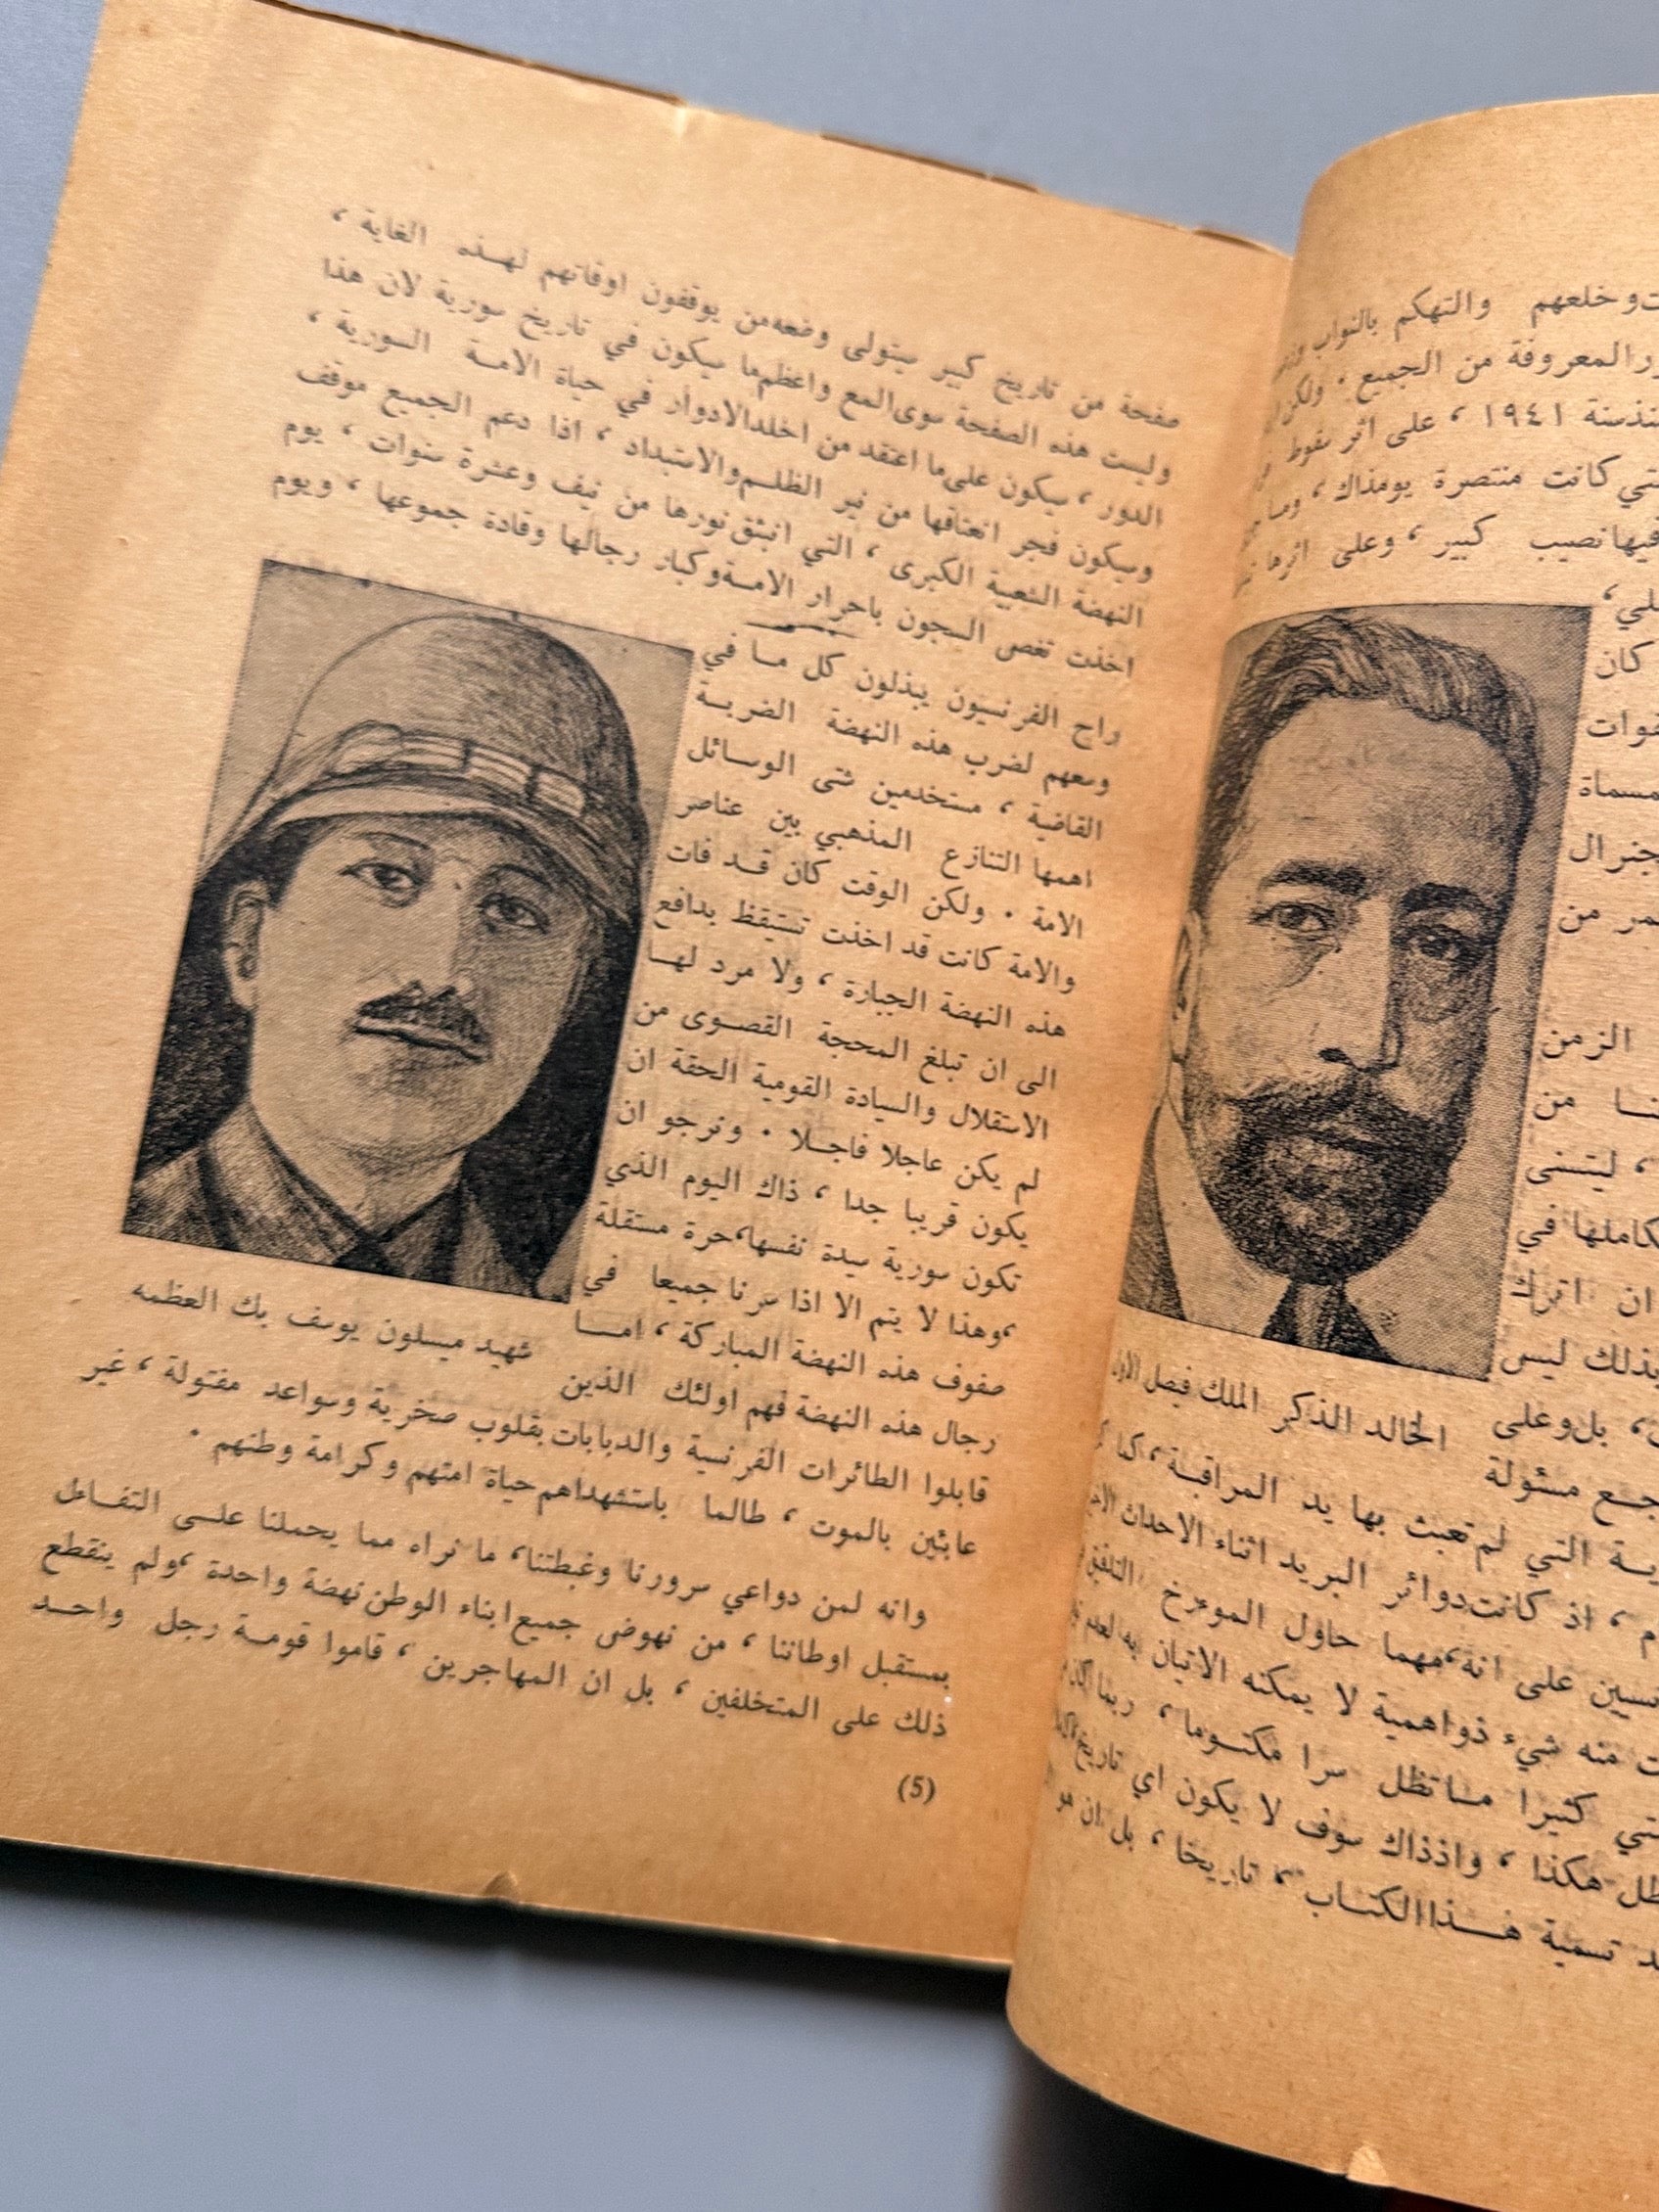 وخلعهم والتهكم بالنواب
المعروفة من الجميع ٠ ولكن
سنة ١٩٤١ ، على اثر سقوط
كانت منتصرة يومذاك ،
فيها نصيب كبير ، وعلى اثرها
كان
من
الزمن
من
، ليتسنى
في
ان اترك
بذلك ليس
، بل وعلى
الخالد الذكر الملك فيصل الاول
مسئولة
التي لم تعبث بها يد المراقبة ، كما
، اذ كانت دوائر البريد اثناء الاحداث
على انه ، مهما حاول المورخ
منه شيء ذو اهمية لا يمكنه الاتيان به
كثيرا ما تظل سرا مكتوما ، ربما
هكذا ، واذذاك سوف لا يكون اي تاريخ
تسمية هذا الكتاب " تاريخا ، بل ان هو
صفحة من تاريخ كبير سيتولى وضعه من يوقفون اوقاتهم لهذه الغاية ،
وليست هذه الصفحة سوى المع واعظم ما سيكون في تاريخ سورية لان هذا
الدور ، سيكون على ما اعتقد من اخلد الادوار في حياة الامة السورية ،
وسيكون فجر انعتاقها من نير الظلم والاستبداد ، اذا دعم الجميع موقف
النهضة الشعبية الكبرى ، التي انبثق نورها من نيف وعشرة سنوات ، يوم
اخذت تغص السجون باحرار الامة وكبار رجالها وقادة جموعها ، ويوم
راح الفرنسيون يبذلون كل ما في
وسعهم لضرب هذه النهضة الضربة
القاضية ، مستخدمين شتى الوسائل
اهمها التنازع المذهبي بين عناصر
الامة ٠ ولكن الوقت كان قد فات
والامة كانت قد اخذت تستيقظ بدافع
هذه النهضة الجبارة ، ولا مرد لها
الى ان تبلغ المحجة القصوى من
الاستقلال والسيادة القومية الحقة ان
لم يكن عاجلا فاجلا ٠ ونرجو ان
يكون قريبا جدا ، ذاك اليوم الذي
تكون سورية سيدة نفسها ، حرة مستقلة
، وهذا لا يتم الا اذا سرنا جميعا في
صفوف هذه النهضة المباركة ، امــا
شهيد ميسلون يوسف بك العظمه
رجال هذه النهضة فهم اولئك الذين
قابلوا الطائرات الفرنسية والدبابات بقلوب صخرية وسواعد مفتولة ، غير
عابئين بالموت ، طالما باستشهداهم حياة امتهم وكرامة وطنهم ٠
وانه لمن دواعي سرورنا وغبطتنا ، ما نراه مما يحملنا على التفاءل
بمستقبل اوطاننا ، من نهوض جميع ابناء الوطن نهضة واحدة ، ولم ينقطع
ذلك على المتخلفين ، بل ان المهاجرين ، قاموا قومة رجل واحد
(5)